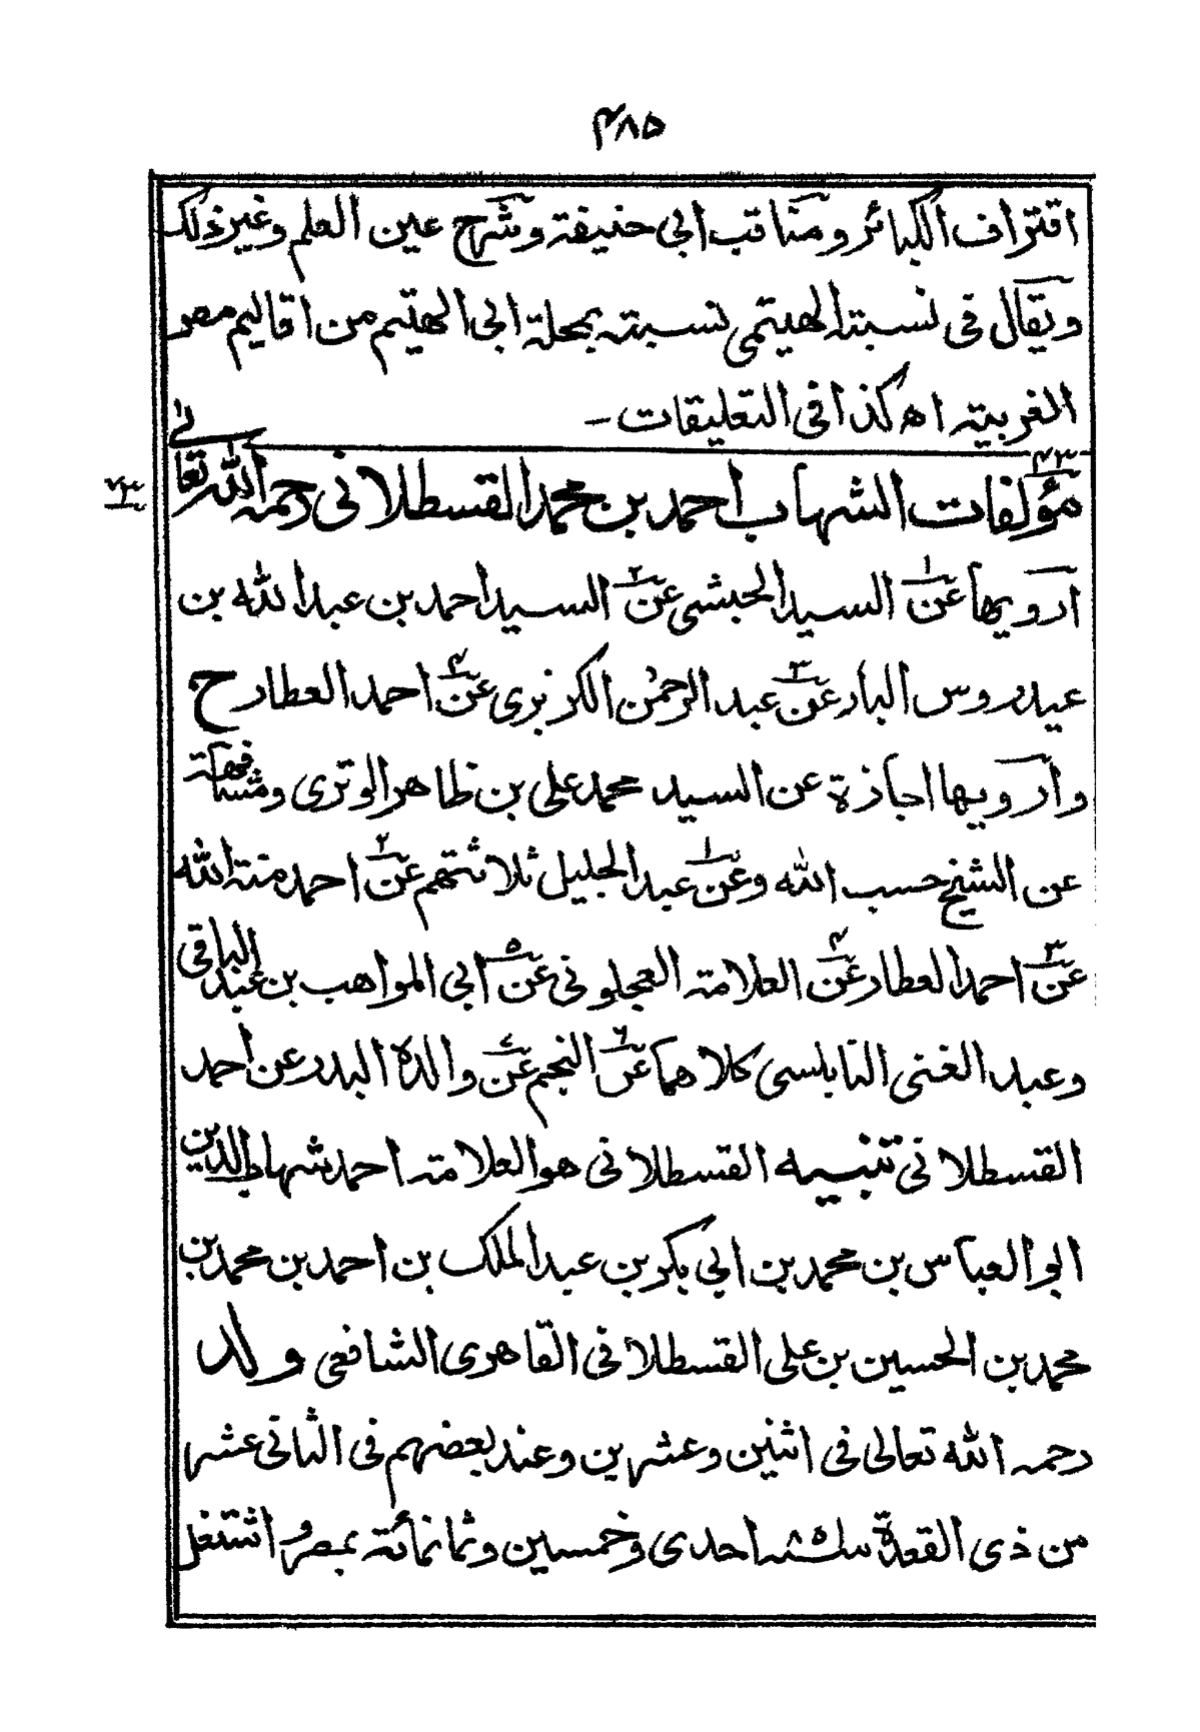 ۴۸۵
اقتراف الكبائر ومناقب ابى حنيفة وشرح عين العلم وغير ذلك
ويقال فى نسبته الهيتمى نسبته بمحلة ابى الهيتم من اقاليم مصر
الغربية اھ كذا فى التعليقات -
۷۳ مؤلفات الشهاب احمد بن محمد القسطلانى رحمه الله تعالى
۷۳
ارويها عن۱ السيد الحبشى عن۲ السيد احمد بن عبد الله بن
عيدروس البار عن۳ عبد الرحمٰن الكزبرى عن۴ احمد العطار ح
وارويها اجازة عن السيد محمد على بن ظاهر الوترى ومشافهة
عن الشيخ حسب الله وعن۱ عبد الجليل ثلاثتهم عن۲ احمد منة الله
عن۳ احمد العطار عن۴ العلامة العجلونى عن۵ ابى المواهب بن عبد الباقى
وعبد الغنى النابلسى كلاهما عن۶ النجم عن۷ والده البدر عن احمد
القسطلانى تنبيه القسطلانى هو العلامة احمد شهاب الدين
ابو العباس بن محمد بن ابى بكر بن عبد الملك بن احمد بن محمد بن
محمد بن الحسين بن على القسطلانى القاهرى الشافعى ولد
رحمه الله تعالى فى اثنين وعشرين وعند بعضهم فى الثانى عشر
من ذى القعدة سنة ۸۵۱ احدى وخمسين وثمانمائة بمصر واشتغل